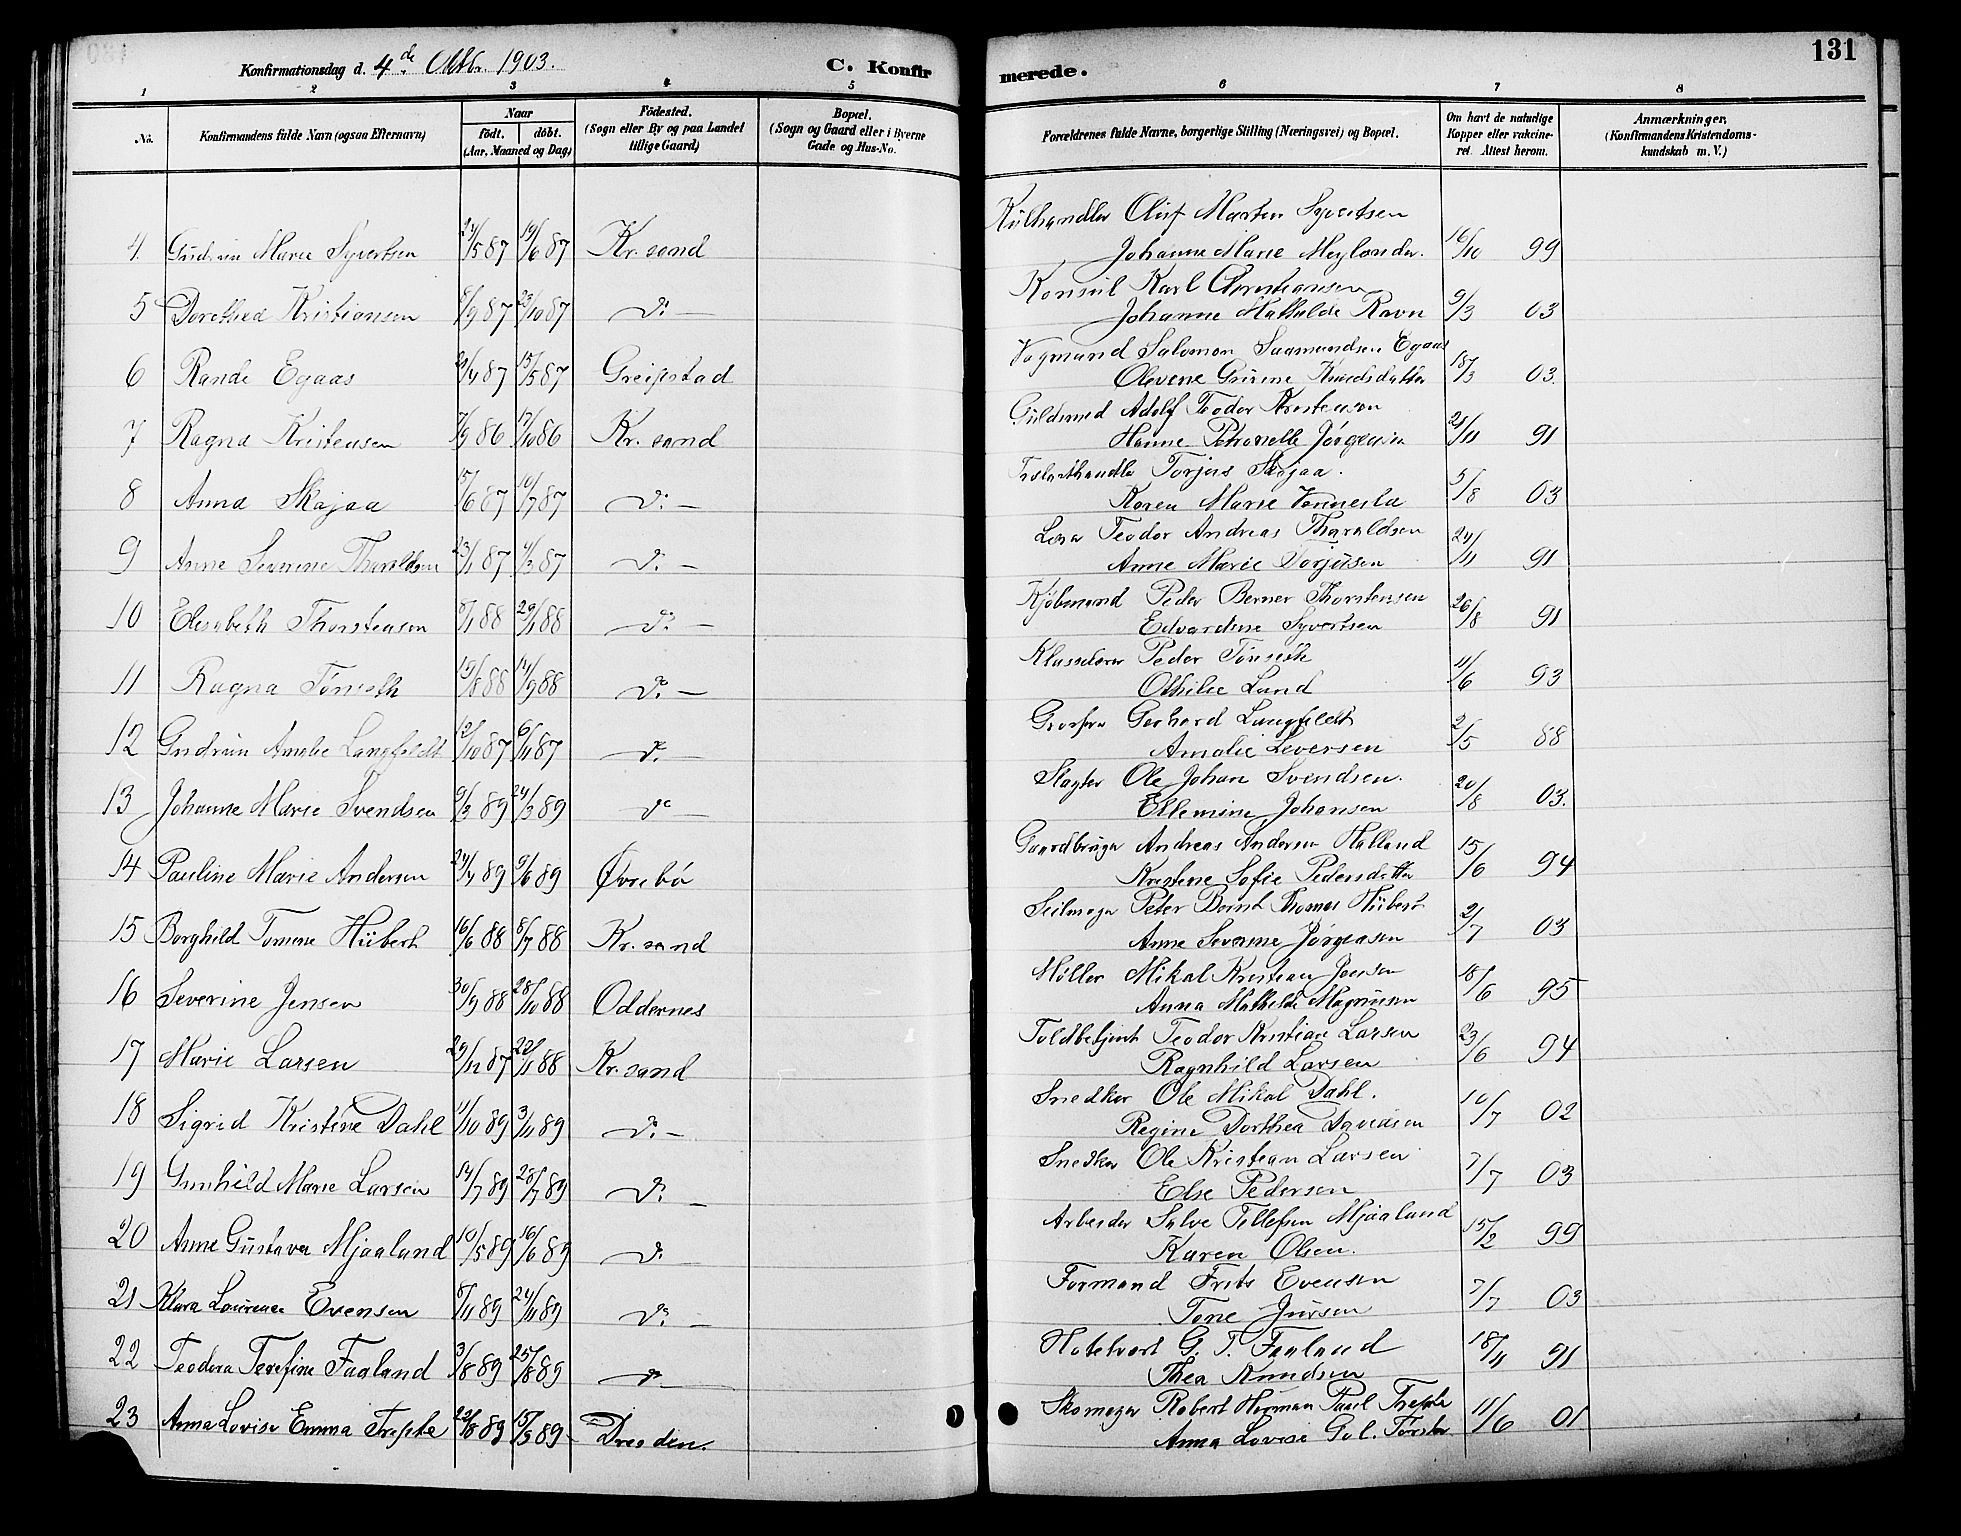 Konfirmationsdag d. 4de Oktbr. 1903.
C. Konfirmerede.
131
1 2 3 4 5 6 7 8
No.
Konfirmandens fulde Navn (ogsaa Efternavn)
Naar
født. døbt.
(Aar, Maaned og Dag)
Fødested.
(Sogn eller By og paa Landet tillige Gaard)
Bopæl.
(Sogn og Gaard eller i Byerne Gade og Hus-No.
Forældrenes fulde Navne, borgerlige Stilling (Næringsvei) og Bopæl.
Om havt de naturlige Kopper eller vakcineret. Attest herom.
Anmærkninger,
(Konfirmandens Kristendomskundskab m. V.)
4. Gudrun Marie Syvertsen 24/5 87 19/6 87 Kr. sand Kulhandler Oluf Marten Syvertsen
Johanne Marie Meylænder. 16/10 99
5 Dorothea Kristiansen 8/9 87 23/10 87 do — Konsul Karl Christiansen
Johanne Mathilde Ravn 9/3 03
6 Rande Egaas 24/4 87 15/5 87 Greipstad Vognmand Salomon Saamundsen Egaas
Olevene Gurine Knudsdatter 18/3 03.
7 Ragna Kristensen 7/9 86 17/10 86 Kr. sand Guldsmed Adolf Teodor Kristensen
Hanne Petronelle Jørgensen 21/11 91
8 Anna Skajaa 15/6 87 10/7 87 do — Torjus Skajaa.
Karen Marie Vennesla 5/8 03
9 Anne Severine Tharaldsen 23/1 87 4/3 87 do — Teodor Andreas Tharaldsen
Anne Marie Torjusen 24/11 91
10 Elisabeth Thorstensen 8/1 88 29/1 88 do — Kjøbmand Peder Berner Thorstensen
Edvardine Syvertsen 26/8 91
11 Ragna Tønseth 19/8 88 14/9 88 do — Klasselærer Peder Tønseth
Othilie Lund 11/6 93
12 Gudrun Amalie Langfeldt 12/10 87 6/11 87 do — Grosserer Gerhard Langfeldt
Amalie Seversen 2/5 88
13 Johanne Marie Svendsen 9/3 89 24/3 89 do — Slagter Ole Johan Svendsen.
Ellemine Johansen 20/8 03.
14 Pauline Marie Andersen 24/4 89 9/6 89 Øvrebø Gaardbruger Andreas Andersen Halland
Kristine Sofie Pedersdatter 15/6 94
15 Borghild Tomine Hübert 16/6 88 8/7 88 Kr. sand Seilmager Peter Bernt Thomas Hübert
Anne Severine Jørgensen 2/7 03
16 Severine Jensen 30/9 88 28/10 88 Oddernes Møller Mikal Kristian Jensen
Anna Mathilde Magnusen 18/6 95
17 Marie Larsen 29/12 87 22/1 88 Kr. sand Toldbetjent Teodor Kristian Larsen
Ragnhild Larsen 23/6 94
18 Sigrid Kristine Dahl 11/10 89 3/11 89 do — Snedker Ole Mikal Dahl.
Regine Dorthea Davidsen 10/7 02
19 Gunhild Marie Larsen 14/7 89 28/7 89 do — Snedker Ole Kristian Larsen
Else Pedersen 7/7 03
20 Anne Gustava Mjaaland 10/5 89 16/6 89 do — Arbeider Salve Tellefsen Mjaaland
Karen Olsen. 15/2 99
21 Klara Laurence Evensen 8/11 89 24/11 89 do — Formand Frits Evensen
Tone Jursen 7/7 03
22 Teodora Terefine Faaland 3/8 89 25/8 89 do — Hotelvert G. T. Faaland
Thea Knudsen 18/11 91
23 Anna Lovise Emma Trepte 22/8 89 15/9 89 Dresden. Skomager Robert Herman Paul Trepte
Anna Lovise 11/6 01